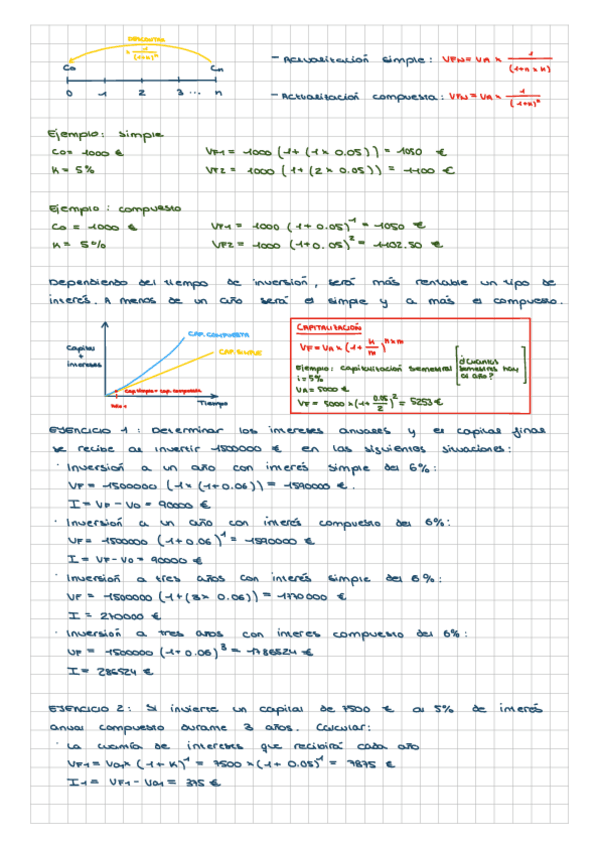 DESCONTAR
× 1/(1+k)^n
C0 Cn
0 1 2 3 ... n
- Actualización simple: VFN = VA × 1/(1+n×k)
- Actualización compuesta: VFN = VA × 1/(1+k)^n
Ejemplo: simple
C0 = 1000 €
VF1 = 1000 (1+(1×0.05)) = 1050 €
K = 5%
VF2 = 1000 (1+(2×0.05)) = 1100 €
Ejemplo: compuesto
C0 = 1000 €
VF1 = 1000 (1+0.05)^1 = 1050 €
K = 5%
VF2 = 1000 (1+0.05)^2 = 1102.50 €
Dependiendo del tiempo de inversión, será más rentable un tipo de
interés. A menos de un año será el simple y a más el compuesto.
Capital
+
intereses
CAP. COMPUESTA
CAP. SIMPLE
cap. simple = cap. compuesta
año 1
Tiempo
CAPITALIZACIÓN
VF = VA × (1 + k/m)^n×m
Ejemplo: capitalización semestral
i = 5%
VA = 5000 €
VF = 5000 × (1 + 0.05/2)^2 = 5253 €
¿Cuántos
semestres hay
al año?
EJERCICIO 1: Determinar los intereses anuales y el capital final
se recibe al invertir 1500000 € en las siguientes situaciones:
· Inversión a un año con interés simple del 6%:
VF = 1500000 (1×(1+0.06)) = 1590000 €.
I = VF - V0 = 90000 €
· Inversión a un año con interés compuesto del 6%:
VF = 1500000 (1+0.06)^1 = 1590000 €
I = VF - V0 = 90000 €
· Inversión a tres años con interés simple del 6%:
VF = 1500000 (1+(3×0.06)) = 1770000 €
I = 270000 €
· Inversión a tres años con interes compuesto del 6%:
VF = 1500000 (1+0.06)^3 = 1786524 €
I = 286524 €
EJERCICIO 2: Si invierte un capital de 7500 € al 5% de interés
anual compuesto durante 3 años. Calcular:
· La cuantía de intereses que recibirá cada año
VF1 = V01 × (1+K)^1 = 7500 × (1+0.05)^1 = 7875 €
I1 = VF1 - V01 = 375 €